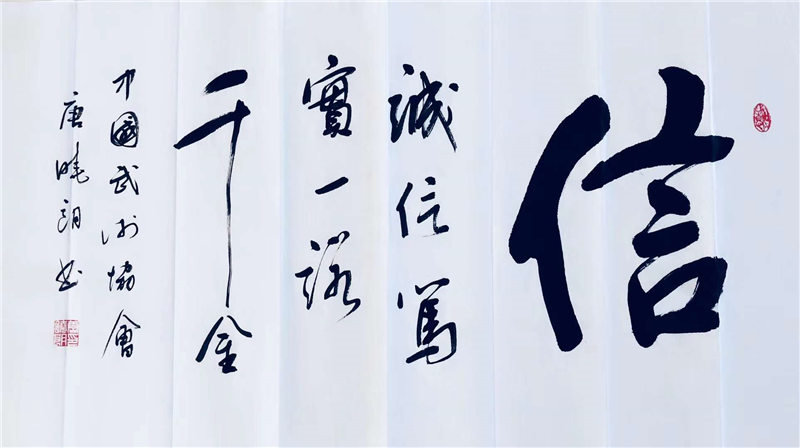 信
誠信篤
實一諾
千金
中國武術協會
唐曉朗书